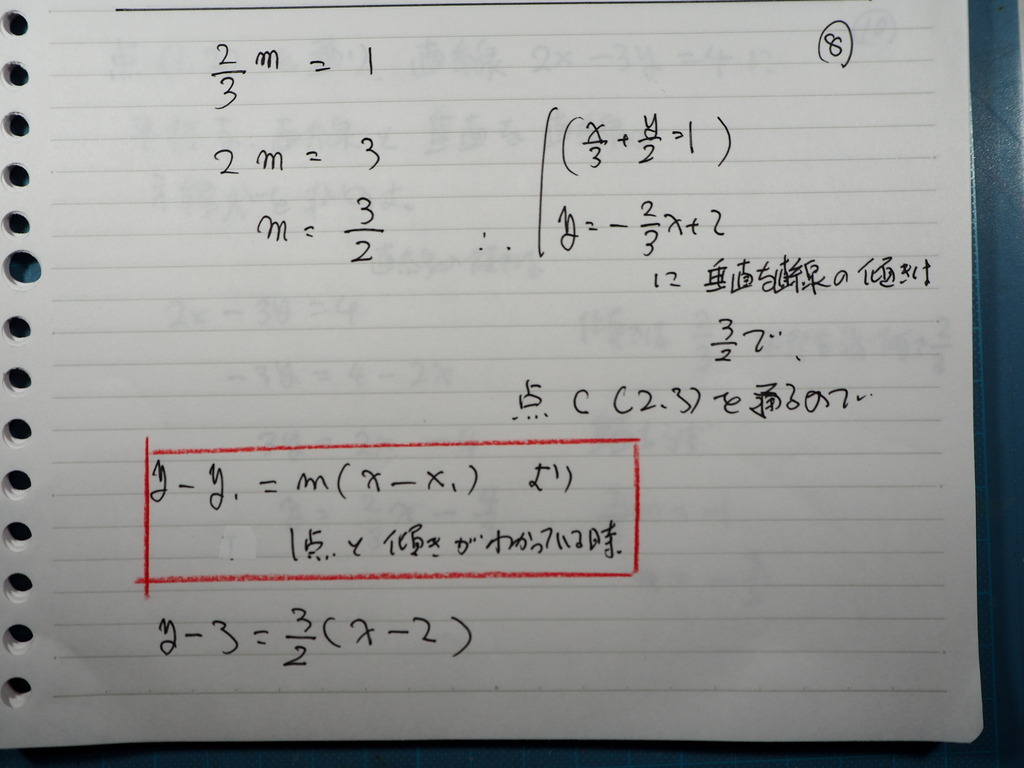 ⑧
2/3 m = 1
2m = 3
m = 3/2
∴ (x/3 + y/2 = 1)
y = -2/3 x + 2
に垂直な直線の傾きは
3/2で、
点C(2.3)を通るので
y - y₁ = m(x - x₁) より
1点と傾きがわかっている時.
y - 3 = 3/2(x - 2)